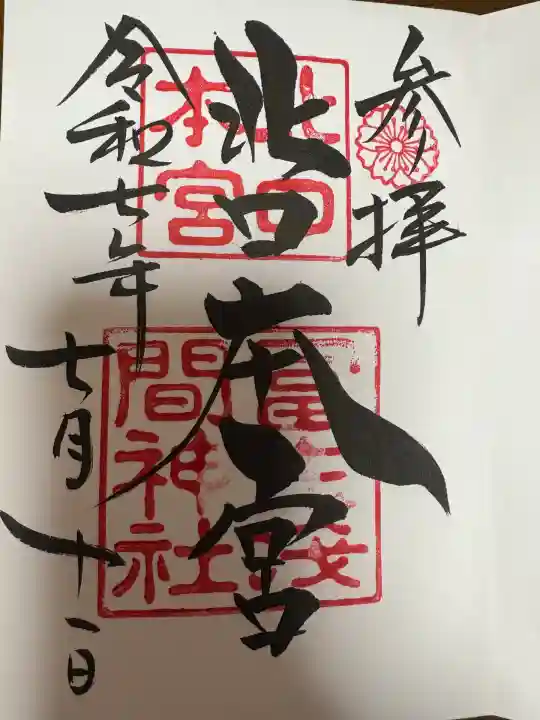 参拝
北口本宮
北口
本宮
冨士浅
間神社
令和七年
七月十一日